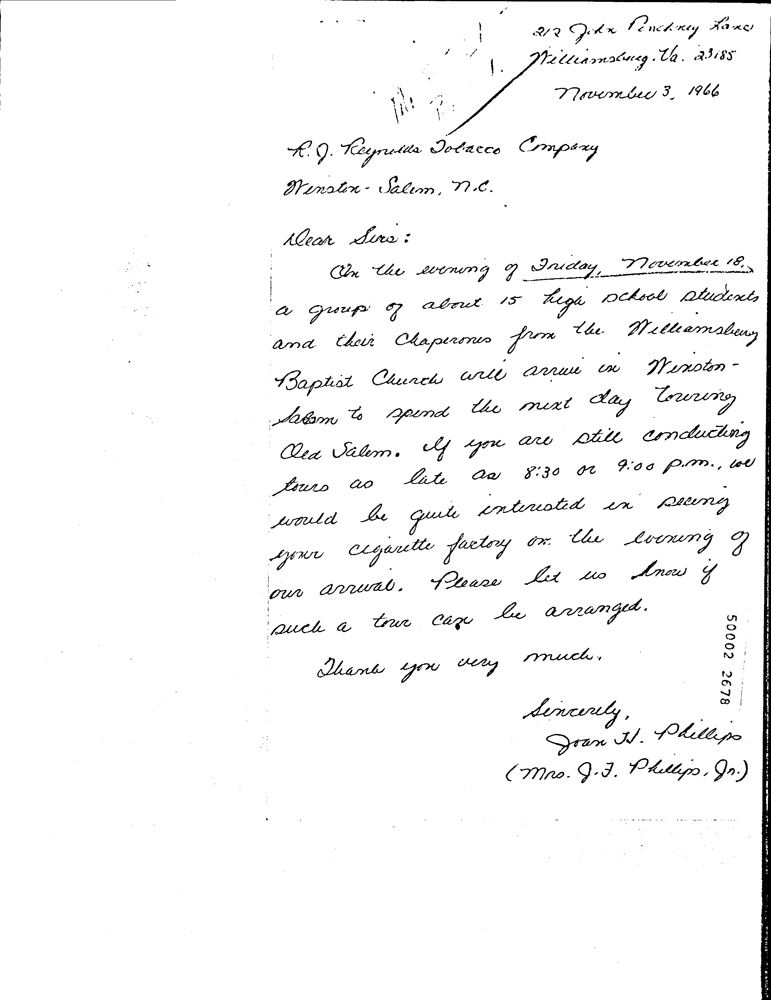 212 John Pinckney Lane
Williamsburg, Va. 23185
November 3, 1966
R. J. Reynolds Tobacco Company
Winston-Salem, N.C.
Dear Sirs:
On the evening of Friday, November 18,
a group of about 15 high school students
and their chaperones from the Williamsburg
Baptist Church will arrive in Winston-
Salem to spend the next day touring
Old Salem. If you are still conducting
tours as late as 8:30 or 9:00 p.m., we
would be quite interested in seeing
your cigarette factory on the evening of
our arrival. Please let us know if
such a tour can be arranged.
Thank you very much.
Sincerely,
Joan H. Phillips
(Mrs. J. F. Phillips, Jr.)
50002 2678